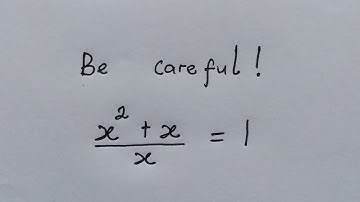 Be careful!
x² + x / x = 1